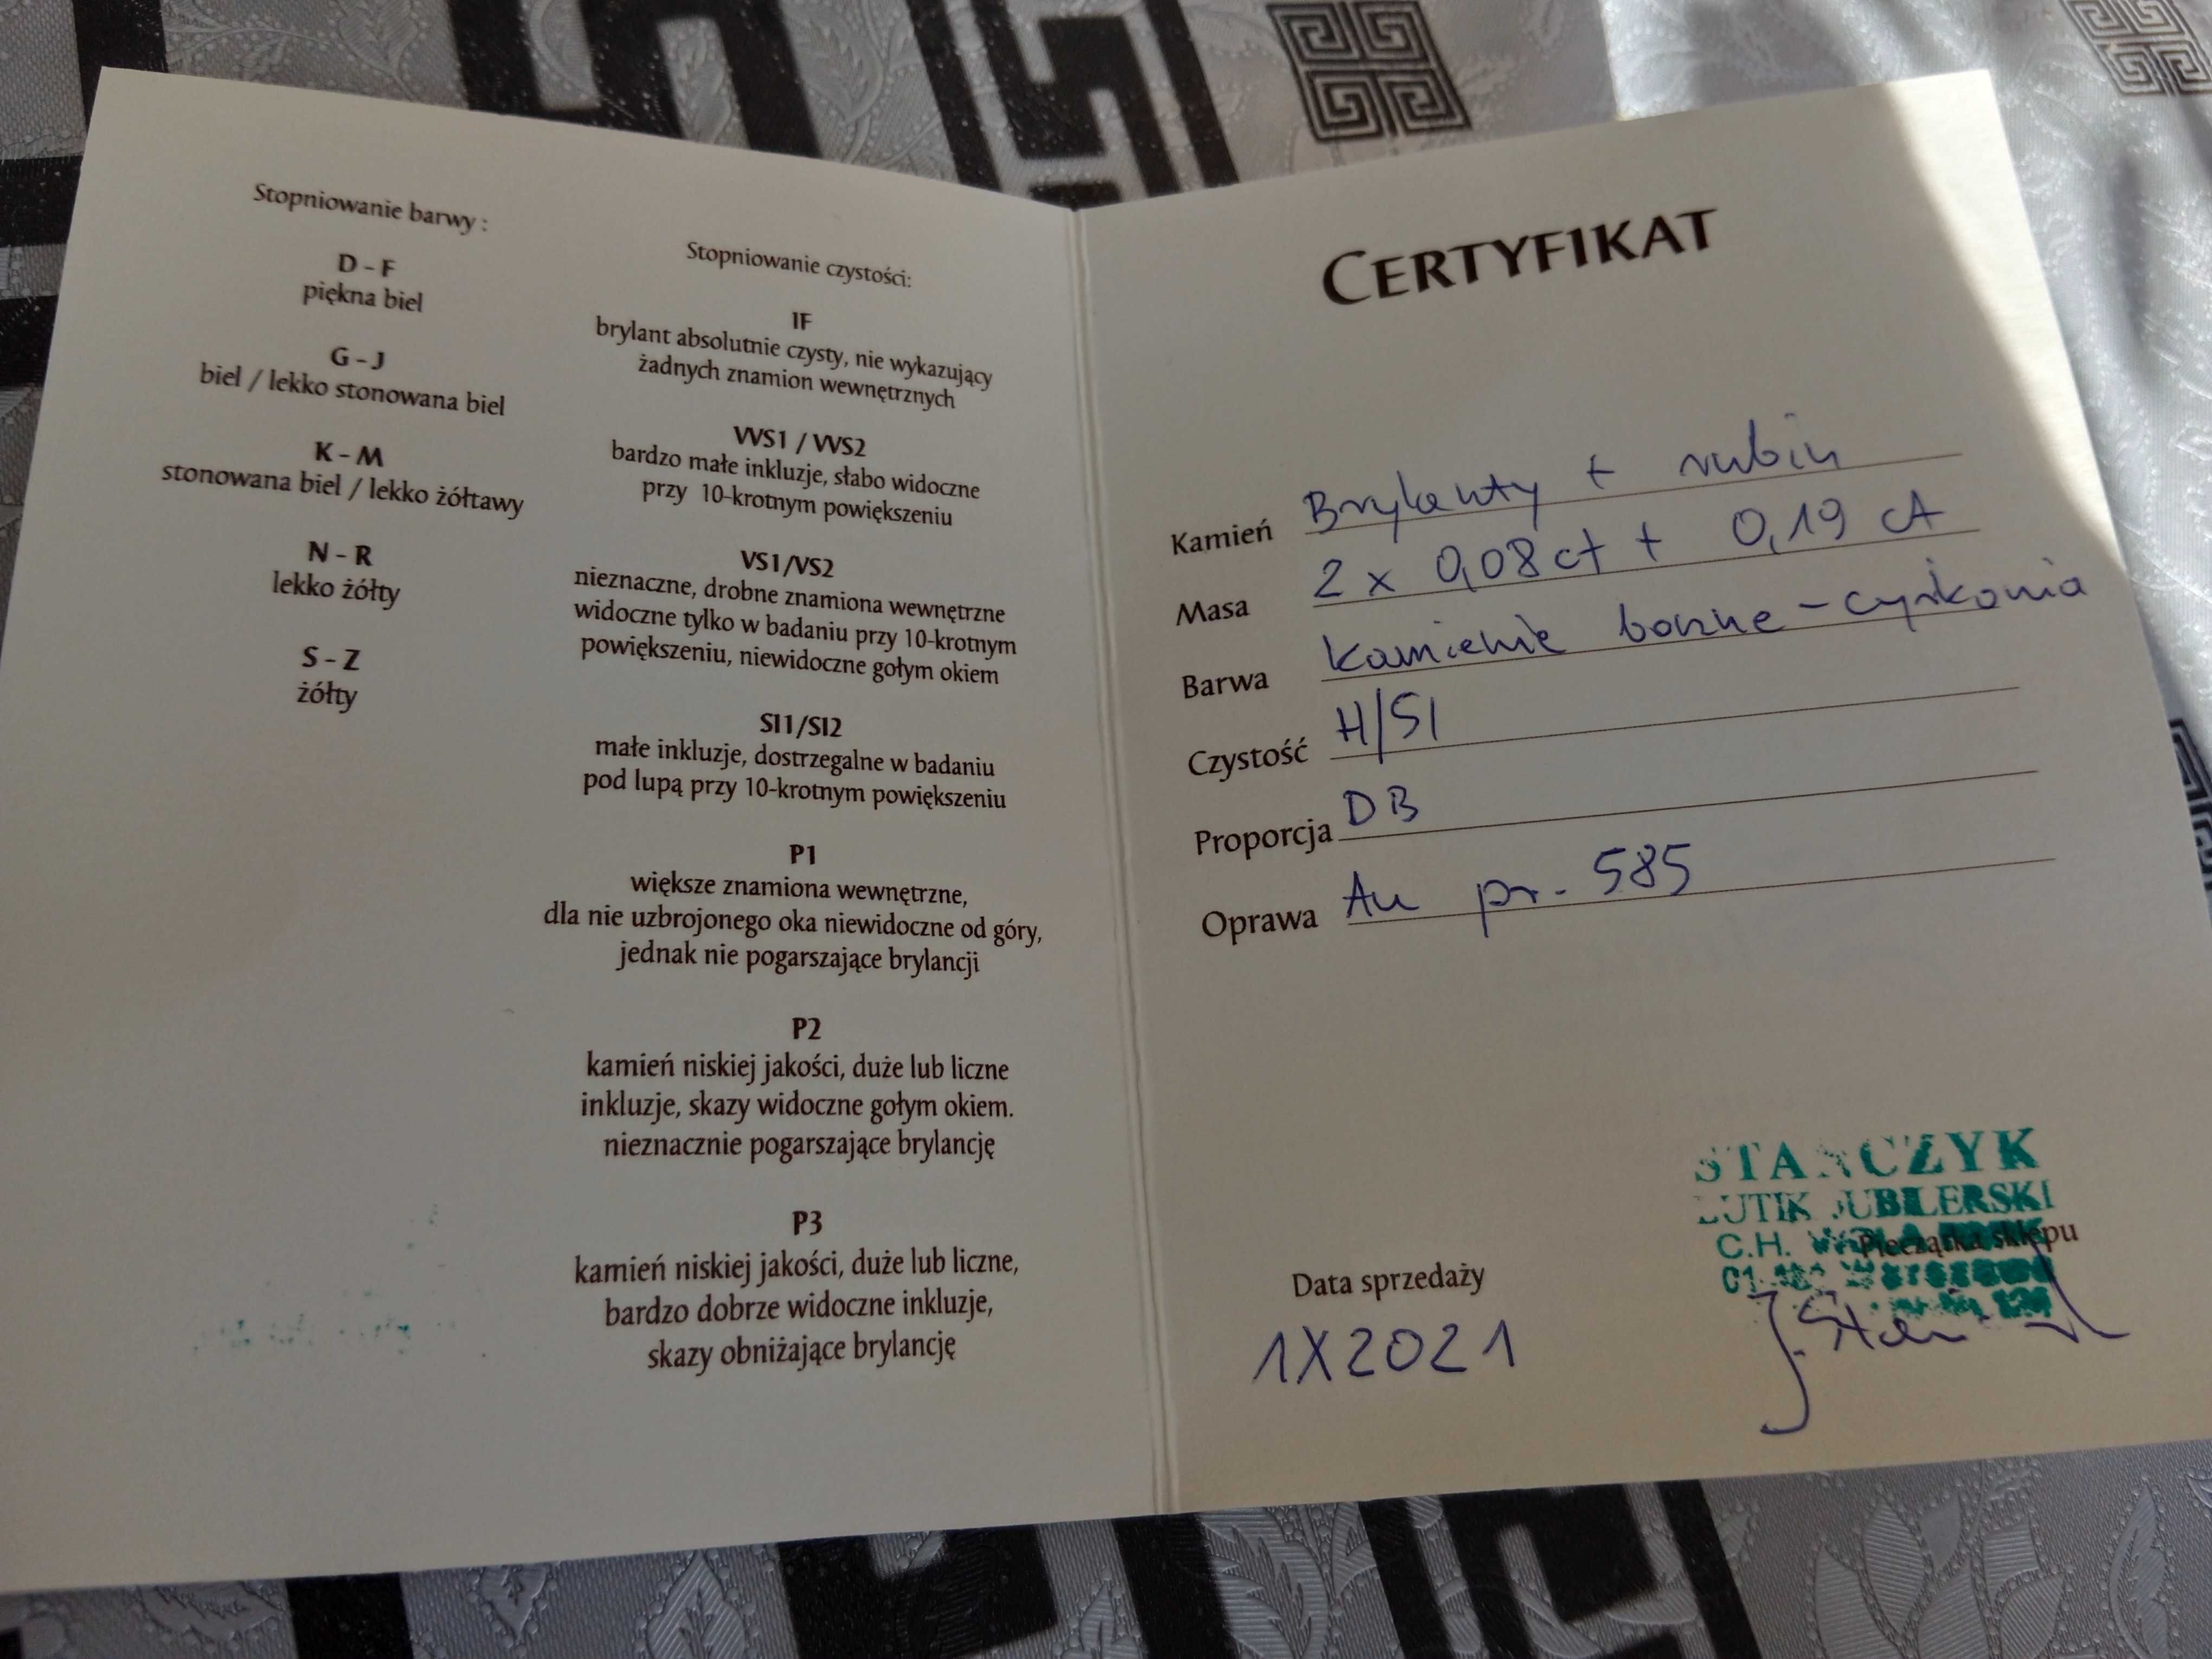 Stopniowanie barwy :
D - F
piękna biel
G - J
biel / lekko stonowana biel
K - M
stonowana biel / lekko żółtawy
N - R
lekko żółty
S - Z
żółty
Stopniowanie czystości:
IF
brylant absolutnie czysty, nie wykazujący
żadnych znamion wewnętrznych
VVS1 / VVS2
bardzo małe inkluzje, słabo widoczne
przy 10-krotnym powiększeniu
VS1/VS2
nieznaczne, drobne znamiona wewnętrzne
widoczne tylko w badaniu przy 10-krotnym
powiększeniu, niewidoczne gołym okiem
SI1/SI2
małe inkluzje, dostrzegalne w badaniu
pod lupą przy 10-krotnym powiększeniu
P1
większe znamiona wewnętrzne,
dla nie uzbrojonego oka niewidoczne od góry,
jednak nie pogarszające brylancji
P2
kamień niskiej jakości, duże lub liczne
inkluzje, skazy widoczne gołym okiem.
nieznacznie pogarszające brylancję
P3
kamień niskiej jakości, duże lub liczne,
bardzo dobrze widoczne inkluzje,
skazy obniżające brylancję
CERTYFIKAT
Kamień Brylanty + rubin
Masa 2 x 0,08 ct + 0,19 ct
Barwa kamienie boczne - cyrkonia
Czystość H/SI
Proporcja DB
Oprawa Au pr. 585
STAŃCZYK
BUTIK JUBILERSKI
C.H.
Pieczątka sklepu
Warszawa
Data sprzedaży
1X2021